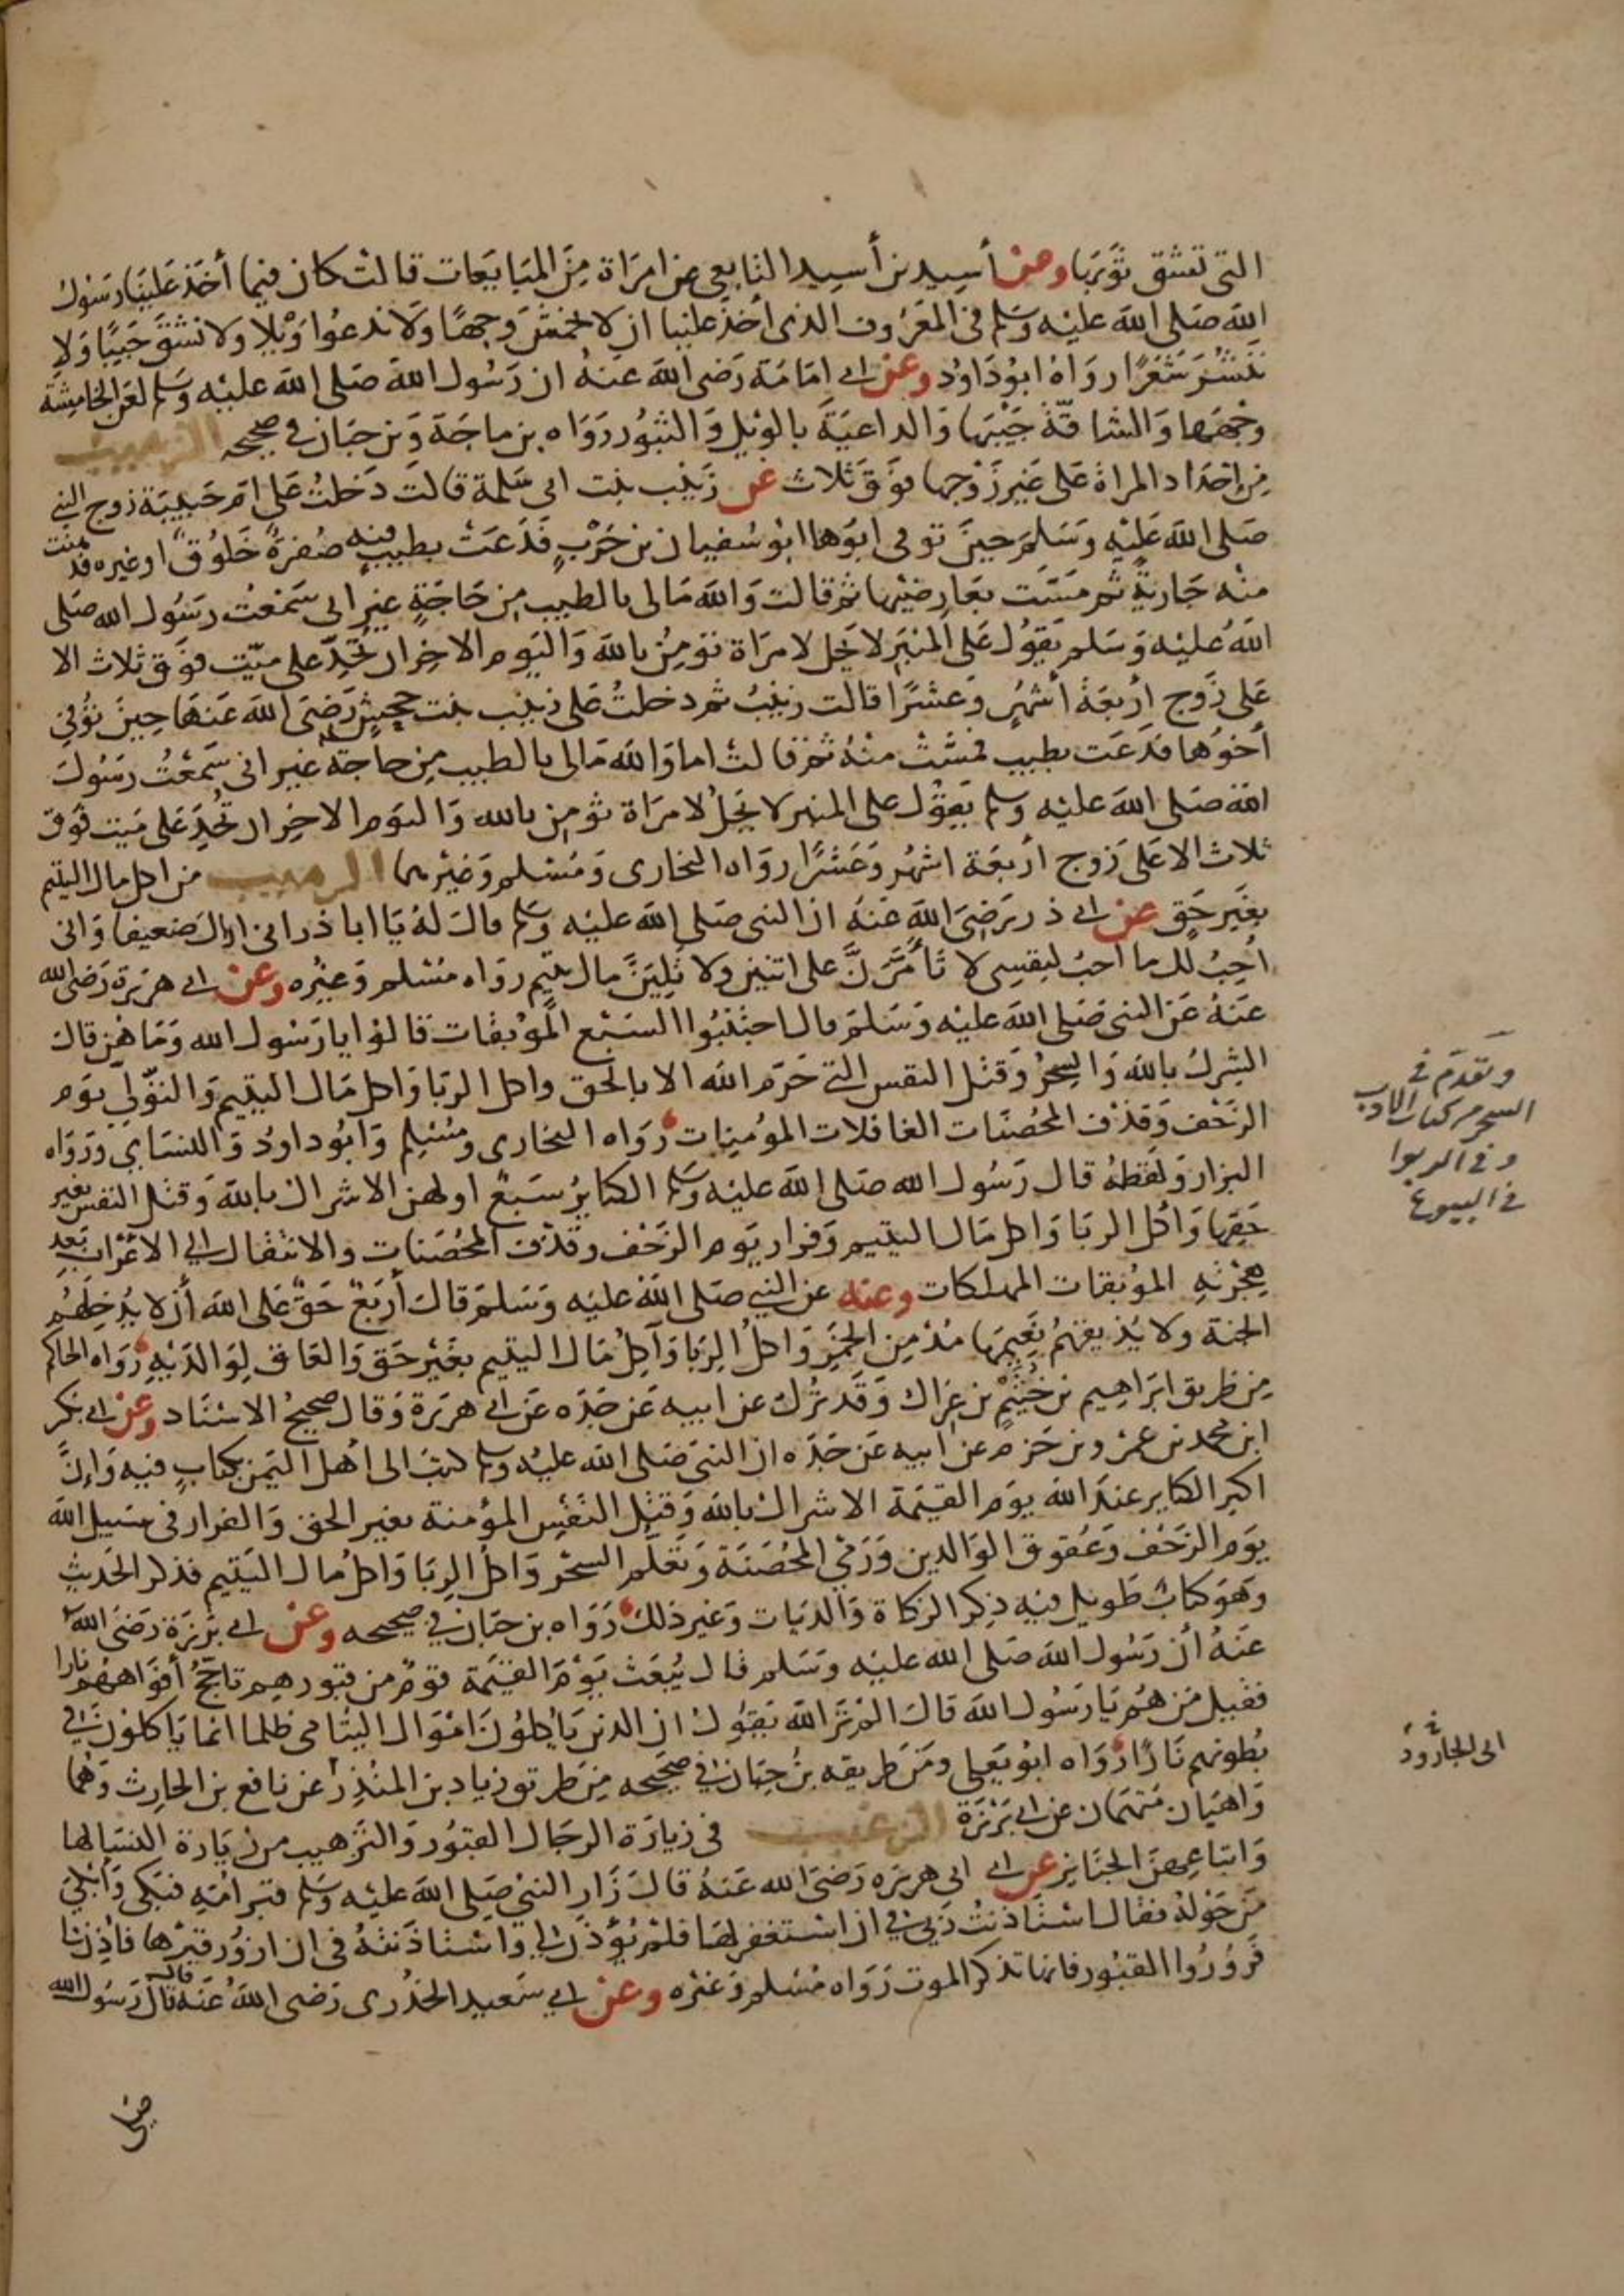 التي تشق ثوبها وعن أسيد بن أسيد التابعي عن امراة من المبايعات قالت كان فيما أخذ علينا رسول
الله صلى الله عليه وسلم في المعروف الذي أخذ علينا ان لا نخمش وجها ولا ندعوا ويلا ولا نشق جيبا ولا
ننشر شعرا رواه ابو داود وعن ابي امامة رضى الله عنه ان رسول الله صلى الله عليه وسلم لعن الخامشة
وجهها والشاقة جيبها والداعية بالويل والثبور رواه بن ماجة وبن حبان في صحيحه الترهيب
من إحداد المراة على غير زوجها فوق ثلاث عن زينب بنت ابي سلمة قالت دخلت على ام حبيبة زوج النبي
صلى الله عليه وسلم حين توفى ابوها ابو سفيان بن حرب فدعت بطيب فيه صفرة خلوق او غيره فدهنت
منه جارية ثم مست بعارضيها ثم قالت والله مالى بالطيب من حاجة غير انى سمعت رسول الله صلى
الله عليه وسلم يقول على المنبر لا يحل لامراة تومن بالله واليوم الاخر ان تحد على ميت فوق ثلاث الا
على زوج أربعة أشهر وعشرا قالت زينب ثم دخلت على زينب بنت جحش رضى الله عنها حين توفي
أخوها فدعت بطيب فمست منه ثم قالت اما والله مالى بالطيب من حاجة غير انى سمعت رسول
الله صلى الله عليه وسلم يقول على المنبر لا يحل لامراة تومن بالله واليوم الاخر ان تحد على ميت فوق
ثلاث الا على زوج أربعة اشهر وعشرا رواه البخارى ومسلم وغيرهما الترهيب من اكل مال اليتيم
بغير حق عن ابي ذر رضى الله عنه ان النبى صلى الله عليه وسلم قال له يا ابا ذر انى اراك ضعيفا وانى
أحب لك ما احب لنفسى لا تأمرن على اثنين ولا تلين مال يتيم رواه مسلم وغيره وعن ابي هريرة رضى الله
عنه عن النبى صلى الله عليه وسلم قال اجتنبوا السبع الموبقات قالوا يا رسول الله وما هن قال
الشرك بالله والسحر وقتل النفس التي حرم الله الا بالحق واكل الربا واكل مال اليتيم والتولي يوم
الزحف وقذف المحصنات الغافلات المومنات رواه البخارى ومسلم وابو داود والنسايى ورواه
البزار ولفظه قال رسول الله صلى الله عليه وسلم الكباير سبع اولهن الاشراك بالله وقتل النفس بغير
حقها واكل الربا واكل مال اليتيم وفرار يوم الزحف وقذف المحصنات والانتقال الي الاعراب بعد
هجرته الموبقات المهلكات وعنه عن النبي صلى الله عليه وسلم قال أربع حق على الله أن لا يدخلهم
الجنة ولا يذيقهم نعيمها مدمن الخمر واكل الربا وآكل مال اليتيم بغير حق والعاق لوالديه رواه الحاكم
من طريق ابراهيم بن خثيم بن عراك وقد ترك عن ابيه عن جده عن ابي هريرة وقال صحيح الاسناد وعن ابي بكر
ابن محمد بن عمرو بن حزم عن ابيه عن جده ان النبى صلى الله عليه وسلم كتب الى أهل اليمن بكتاب فيه وان
اكبر الكباير عند الله يوم القيمة الاشراك بالله وقتل النفس المؤمنة بغير الحق والفرار فى سبيل الله
يوم الزحف وعقوق الوالدين ورمي المحصنة وتعلم السحر واكل الربا واكل مال اليتيم فذكر الحديث
وهو كتاب طويل فيه ذكر الزكاة والديات وغير ذلك رواه بن حبان في صحيحه وعن ابي برزة رضى الله
عنه أن رسول الله صلى الله عليه وسلم قال يبعث يوم القيمة قوم من قبورهم تاجج أفواههم نارا
فقيل من هم يا رسول الله قال الم تر الله يقول ان الذين ياكلون اموال اليتامى ظلما انما ياكلون في
بطونهم نارا رواه ابو يعلى ومن طريقه بن حبان في صحيحه من طريق زياد بن المنذر عن نافع بن الحارث وهما
واهيان متهمان عن ابي برزة الترغيب فى زيارة الرجال القبور والترهيب من زيارة النسا لها
واتباعهن الجنايز عن ابي ابى هريره رضى الله عنه قال زار النبى صلى الله عليه وسلم قبر امه فبكى وابكى
من حوله فقال استاذنت ربي في ان استغفر لها فلم يؤذن لي واستاذنته فى ان ازور قبرها فأذن لنا
فزوروا القبور فانها تذكر الموت رواه مسلم وغيره وعن ابي سعيد الخدرى رضى الله عنه قال قال رسول الله
وتقدم في
السحر من كتاب الادب
وفى الربوا
فى البيوع
ابى الجارود
صلى